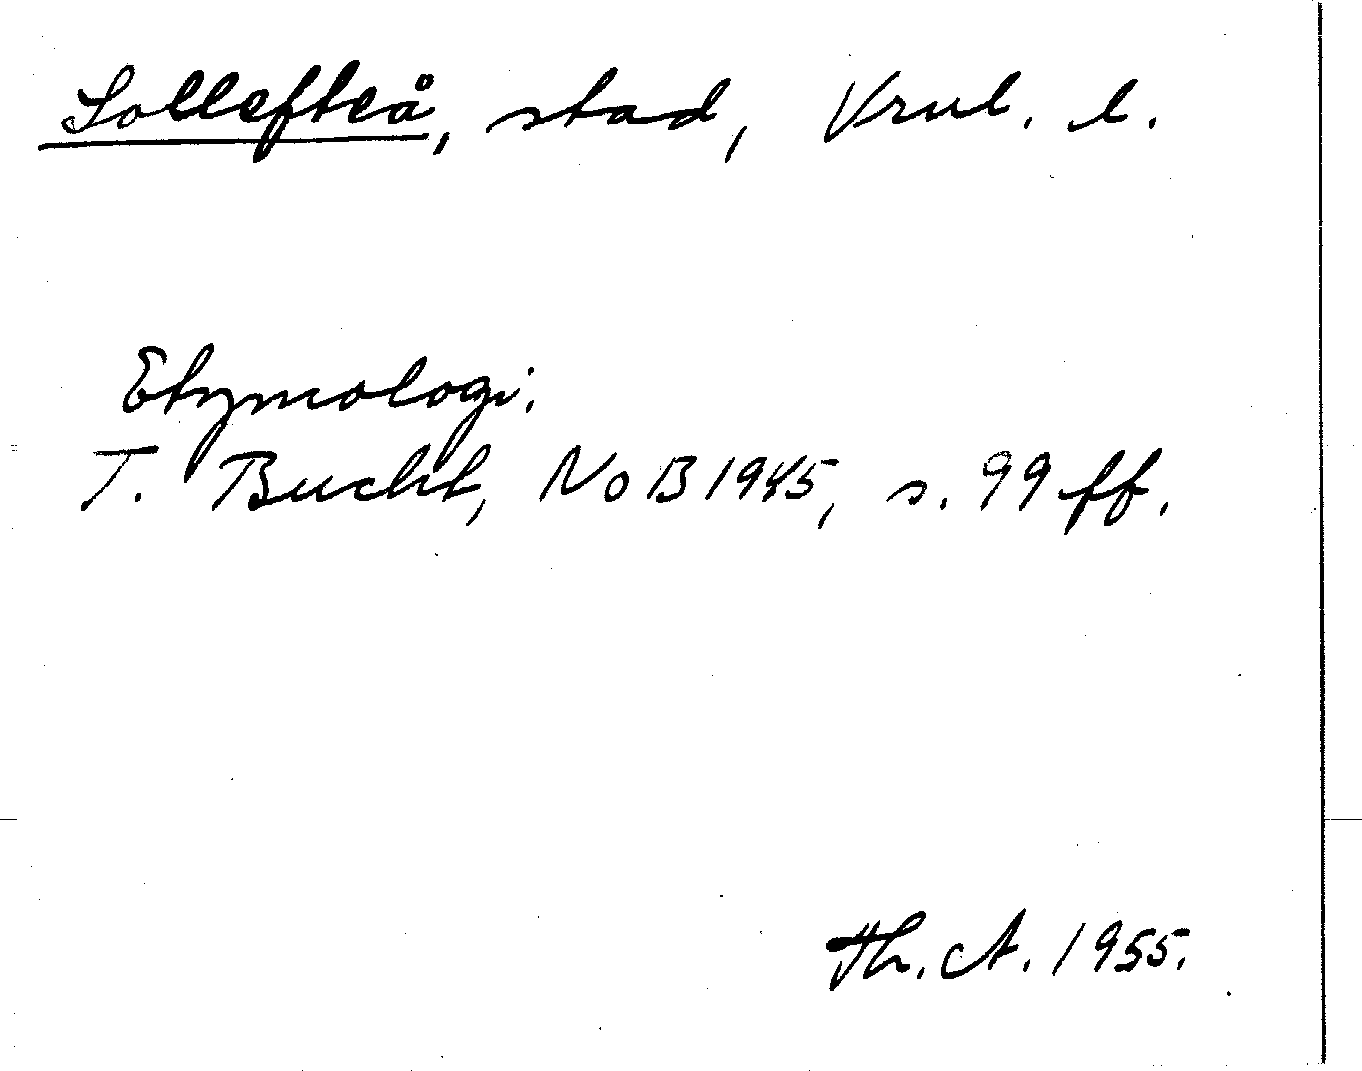 Sollefteå, stad, Vrnl. l.
Etymologi:
T. Bucht, NoB 1945, s. 99 ff.
Th. A. 1955.